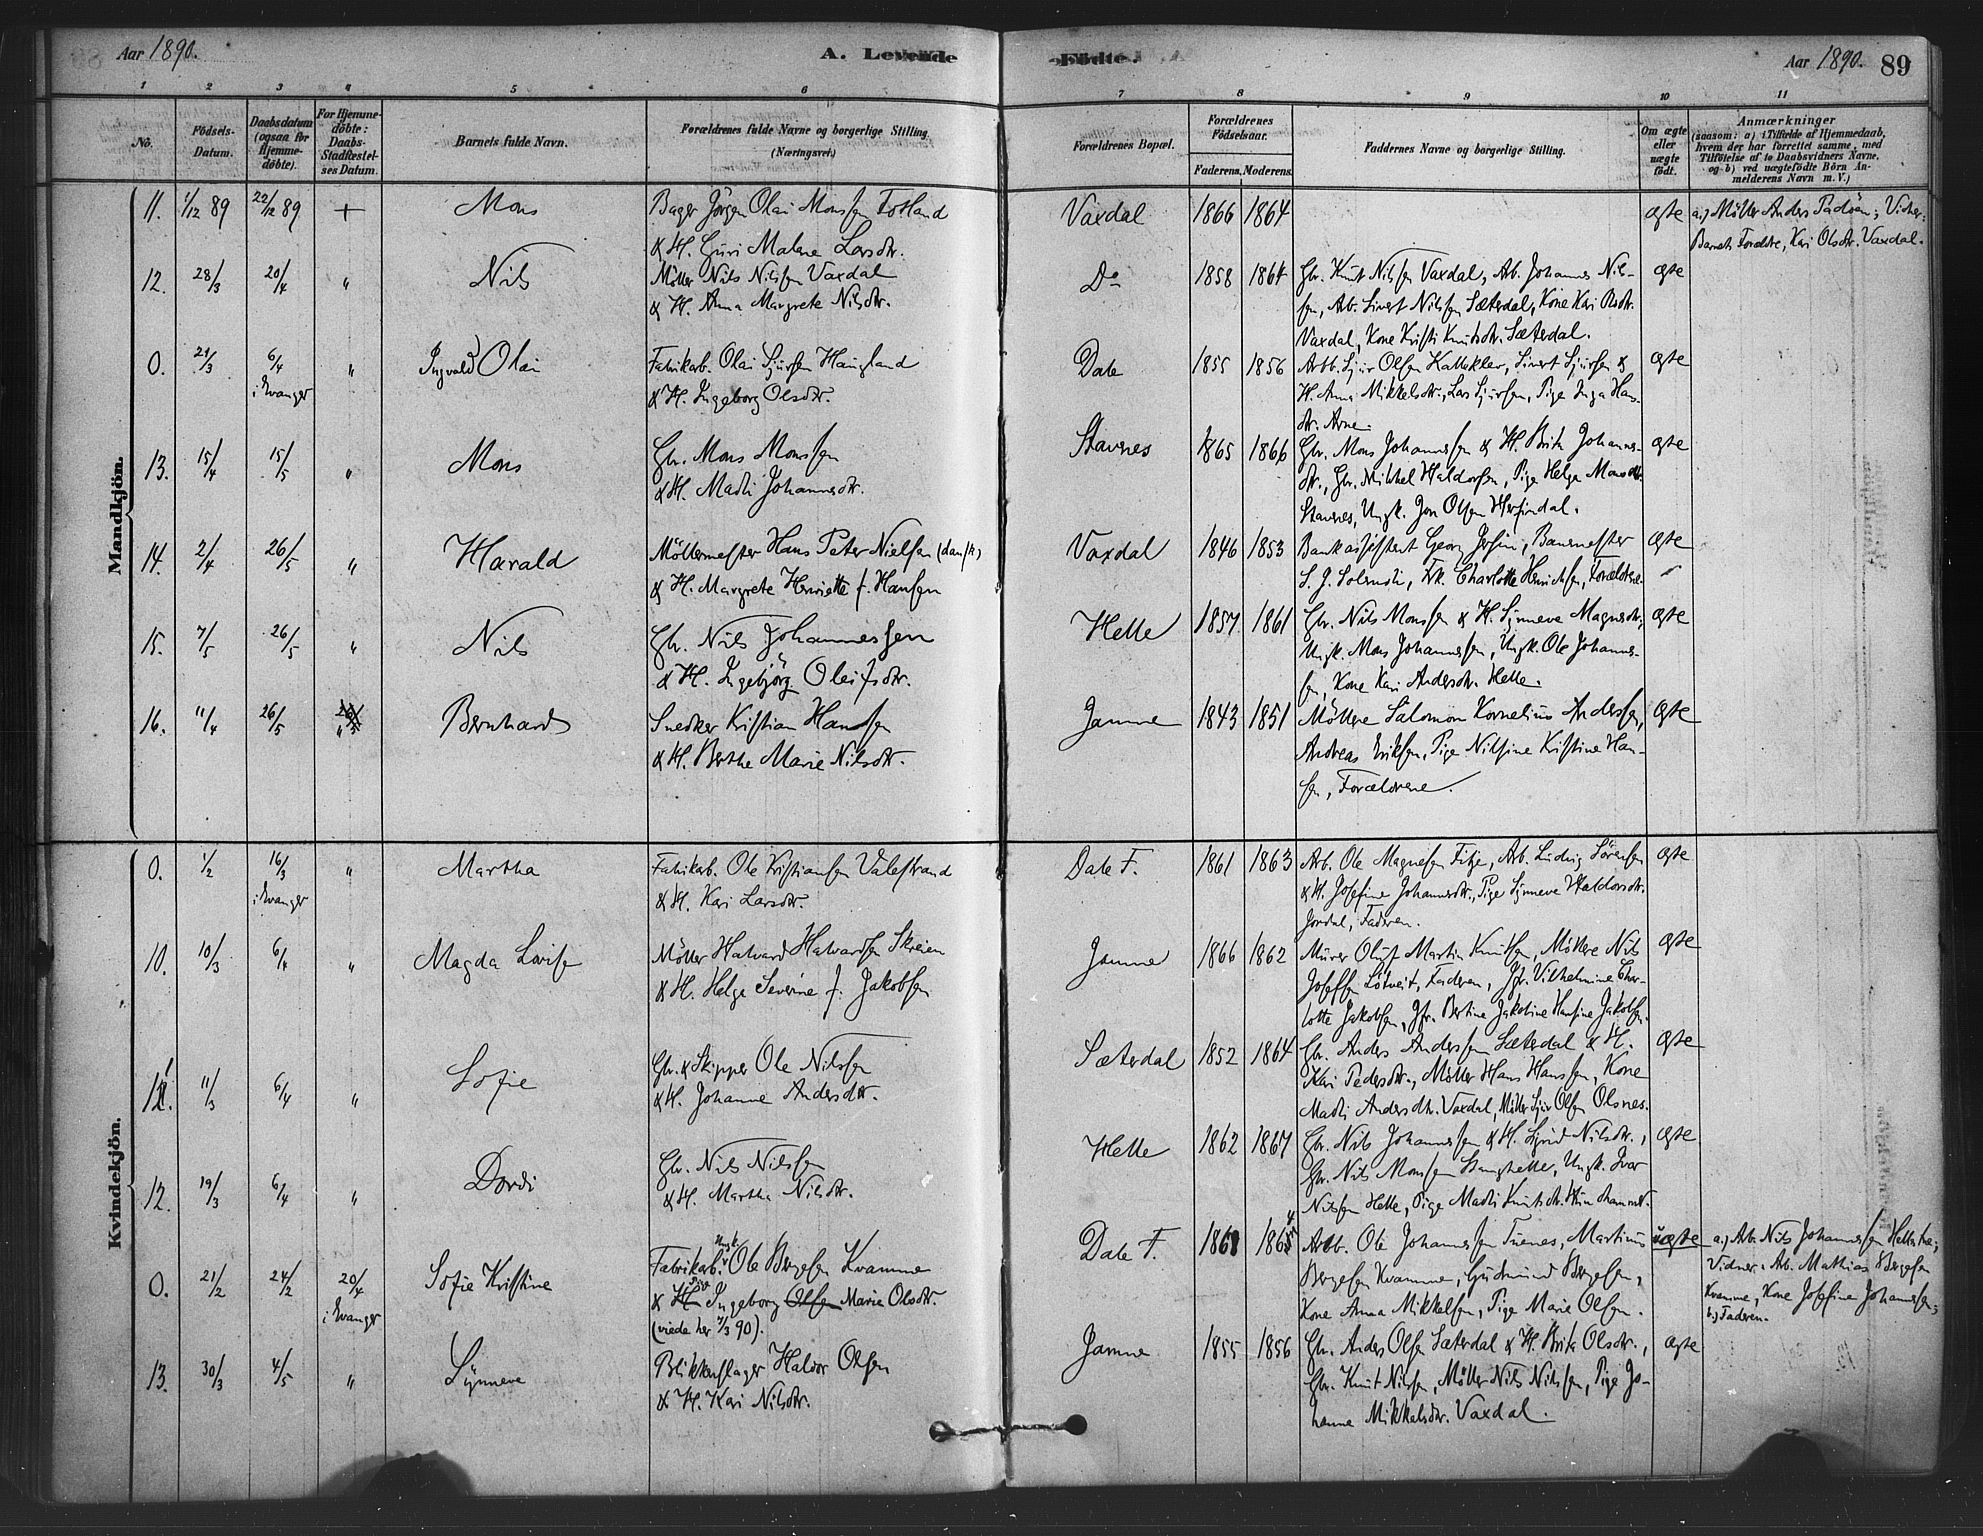 Aar 1890.
A. Levende
Födte.
Aar 1890. 89
1 2 3 4 5 6
7 8 9 10 11
No.
Födsels-Datum.
Daabsdatum (ogsaa for Hjemme-döbte).
For Hjemme-döbte: Daabs-Stadfæstel-ses Datum.
Barnets fulde Navn.
Forældrenes fulde Navne og borgerlige Stilling.
(Næringsvei.)
Forældrenes Bopæl.
Forældrenes Födselsaar.
Faderens. Moderens.
Faddernes Navne og borgerlige Stilling.
Om ægte eller uægte födt.
Anmærkninger
(saasom: a) i Tilfælde af Hjemmedaab,
hvem der har forrettet samme, med
Tilföielse af to Daabsvidners Navne,
og b) ved uægtefödte Börn An-
melderens Navn m. V.)
Mandkjön.
11. 1/12 89 22/12 89 + Mons Bager Jörgen Olai Monssen Fotland
& H. Guri Malene Larsdtr.
Vaxdal 1866 1864 ægte a.) Möller Anders Vidner:
Barnets Forældre, Kari Olsdtr. Vaxdal.
12. 28/3 20/4 " Nils Möller Nils Nilssen Vaxdal
& H. Anna Margrete Nilsdtr.
Do 1858 1864 Gbr. Knut Nilssen Vaxdal, Arb. Johannes Nil- ægte
sen, Arb. Sivert Nilssen Sæterdal, Kone Kari
Vaxdal, Kone Kristi Knutsdtr. Sæterdal.
0. 21/3 6/4 " Ingvald Olai Fabrikarb. Olai Sjursen Haugland
i Evanger & H. Ingeborg Olsdtr.
Dale 1855 1856 Arbb. Sjur Olsen Sivert Sjursen & ægte
H. Anna Mikkelsdtr., Lars Sjursen, Pige Inga Hans-
dtr. Arne.
13. 15/4 15/5 " Mons Gbr. Mons Monssen
& H. Madli Johannesdtr.
Stavnes 1865 1866 Gbr. Mons Johannessen & H. Brita Johannes- ægte
dtr., Gbr. Mikkel Haldorsen, Pige Helga Monsdtr.
Stavnes, Ungk. Jon Olsen Herfindal.
14. 2/4 26/5 " Harald Möllermester Hans Peter Nielsen (dansk)
& H. Margrete Henriette f. Hansen
Vaxdal 1846 1853 Bankassistent Georg Banemester ægte
S. J. Frk. Charlotte Henrichsen, Forældrene
15. 7/5 26/5 " Nils Gbr. Nils Johannessen
& H. Ingebjörg Oleifsdtr.
Helle 1857 1861 Gbr. Nils Monssen & H. Synneve Magnesdtr., ægte
Ungk. Mons Johannessen, Ungk. Ole Johannes-
sen, Kone Kari Andersdtr. Helle.
16. 11/4 26/5 " Bernhard Snedker Kristian Hansen
& H. Berthe Marie Nilsdtr.
Jamne 1843 1851 Möllere Salomon Kornelius Andersen, ægte
Andreas Eriksen, Pige Nilsine Kristine Han-
sen, Forældrene.
Kvindekjön.
0. 1/2 16/3 " Martha Fabrikarb. Ole Kristiansen Valestrand
i Evanger & H. Kari Larsdtr.
Dale F. 1861 1863 Arb. Ole Magnesen Fitje, Arb. Ludvig Sörensen ægte
& H. Josefine Johannesdtr., Pige Synneve Haldorsdtr.
Jordal, Faderen.
10. 10/3 6/4 " Magda Lovise Möller Halvard Halvardsen Skreien
& H. Helga Severine f. Jakobsen
Jamne 1866 1862 Murer Oluf Martin Knutsen, Möllere Nils ægte
Josefsen Lötveit, Faderen, Jfr. Vilhelmine Char-
lotte Jakobsen, Jfr. Bertine Jakobine Hansine Jakobsen.
11. 11/3 6/4 " Sofie Gbr. & Skipper Ole Nilssen
& H. Johanne Andersdtr.
Sæterdal 1852 1864 Gbr. Anders Anderssen Sæterdal & H. ægte
Kari Pedersdtr., Möller Hans Hanssen, Kone
Madli Andersdtr. Vaxdal, Möller Sjur Olsen Olsnes.
12. 19/3 6/4 " Dordi Gbr. Nils Nilssen
& H. Martha Nilsdtr.
Helle 1862 1867 Gbr. Nils Johannessen & H. Sigrid Nilsdtr., ægte
Gbr. Nils Monssen Stanghelle, Ungk. Ivar
Nilssen Helle, Pige Madli Knutsdtr.
0. 21/2 24/2 20/4 Sofie Kristine Fabrikarb. Ungk. Ole Bergesen Kvamme
i Evanger & H. Pige Ingeborg Olsen Marie Olsdtr.
(viede her 7/3 90).
Dale F. 1868 1864 Arbb. Ole Johannessen Tuenes, Martinus uægte a.) Arb. Nils Johannessen
Bergesen Kvamme, Gudmund Bergesen, Vidner: Arb. Mathias Bergesen
Kone Anna Mikkelsen, Pige Marie Olsen. Kvamme, Kone Josefine Johannesen;
b.) Faderen.
13. 30/3 4/5 " Synneve Blikkenslager Haldor Olsen
& H. Kari Nilsdtr.
Jamne 1855 1856 Gbr. Anders Olsen Sæterdal & H. Brita Olsdtr., ægte
Gbr. Knut Nilsen, Möller Nils Nilssen, Pige Jo-
hanna Mikkelsdtr. Vaxdal.